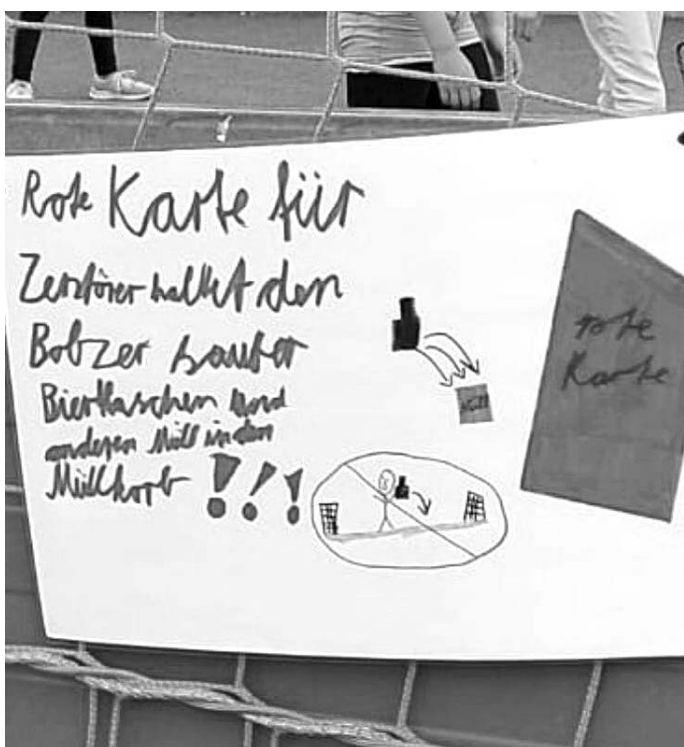 Rote Karte für
Zerstörer haltet den
Bolzer sauber
Bierflaschen und
anderen Müll in den
Müllkorb !!!
Müll
rote
Karte